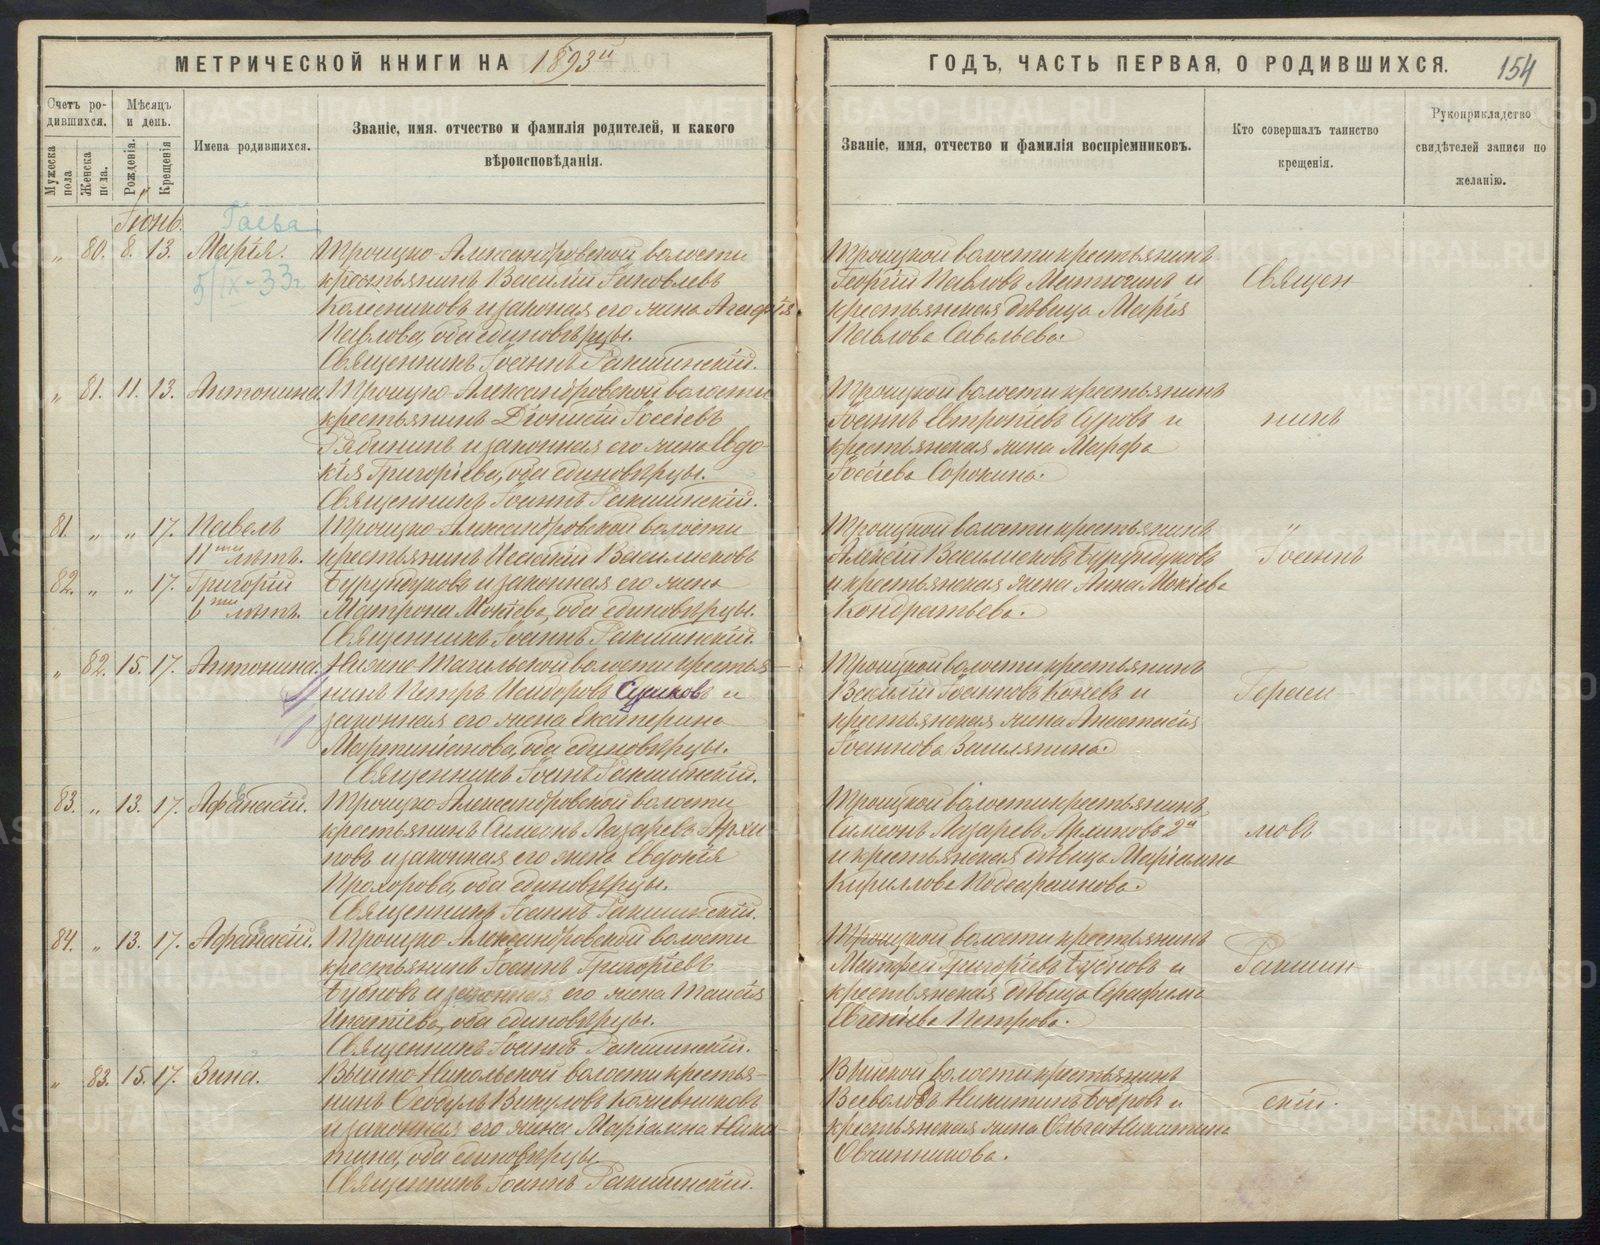 МЕТРИЧЕСКОЙ КНИГИ НА 1893й
Счетъ ро-
дившихся.
Мѣсяцъ
и день.
Мужеска
пола
Женска
пола.
Рожденія.
Крещенія
Имена родившихся.
Званіе, имя, отчество и фамилія родителей, и какого
вѣроисповѣданія.
Іюнь.
„ 80. 8. 13. Марія.
5/IX-33г.
Троицко-Александровской волости
крестьянинъ Василій Іаковлевъ
Колесниковъ и законная его жена Агафія
Павлова, оба единовѣрцы.
Священникъ Іоаннъ Ракшинскій.
„ 81. 11. 13. Антонина.
Троицко-Александровской волости
крестьянинъ Діонисій Іосіевъ
Рябининъ и законная его жена Евдо-
кія Григоріева, оба единовѣрцы.
Священникъ Іоаннъ Ракшинскій.
81. „ „ 17. Павелъ
11ти лѣтъ.
82. „ „ 17. Григорій
6ти лѣтъ.
Троицко-Александровской волости
крестьянинъ Василисковъ
Бурундуковъ и законная его жена
Матрона Мокіева, оба единовѣрцы.
Священникъ Іоаннъ Ракшинскій.
„ 82. 15. 17. Антонина.
Нижне-Тагильской волости крестья-
нинъ Петръ Исидоровъ и
законная его жена Екатерина
Мартиніанова, оба единовѣрцы.
Священникъ Іоаннъ Ракшинскій.
83. „ 13. 17. Афанасій.
Троицко-Александровской волости
крестьянинъ Симеонъ Лазаревъ Архи-
повъ и законная его жена Евдокія
Прохорова, оба единовѣрцы.
Священникъ Іоаннъ Ракшинскій.
84. „ 13. 17. Афанасій.
Троицко-Александровской волости
крестьянинъ Іоаннъ Григоріевъ
Бубновъ и законная его жена Таисія
Игнатіева, оба единовѣрцы.
Священникъ Іоаннъ Ракшинскій.
„ 83. 15. 17. Зина.
Выйско-Никольской волости крестья-
нинъ Викуловъ Кожевниковъ
и законная его жена Маріамна Ники-
тина, оба единовѣрцы.
Священникъ Іоаннъ Ракшинскій.
ГОДЪ, ЧАСТЬ ПЕРВАЯ, О РОДИВШИХСЯ.
154
Званіе, имя, отчество и фамилія воспріемниковъ.
Кто совершалъ таинство
крещенія.
Рукоприкладство
свидѣтелей записи по
желанію.
Троицкой волости крестьянинъ
Георгій Павловъ Матюгинъ и
крестьянская дѣвица Марія
Павлова Савельева.
Троицкой волости крестьянинъ
Іоаннъ Евтропіевъ Суровъ и
крестьянская жена Марфа
Іосіева Сорокина.
Троицкой волости крестьянинъ
Алексій Василисковъ Бурундуковъ
и крестьянская жена Анна Мокіева
Кондратьева.
Троицкой волости крестьянинъ
Василій Іоанновъ Коневъ и
крестьянская жена Анастасія
Іоаннова Замлянина.
Троицкой волости крестьянинъ
Симеонъ Лазаревъ Архиповъ 2й
и крестьянская дѣвица Маріамна
Кириллова
Троицкой волости крестьянинъ
Матфей Григоріевъ Бубновъ и
крестьянская дѣвица Серафима
Евгеніева Петрова.
Выйской волости крестьянинъ
Всеволодъ Никитинъ Бобровъ и
крестьянская жена Ольга Никитина
Овчинникова.
Священ
никъ
Іоаннъ
Гераси
мовъ
Ракшин
скій.
METRIKI.GASO-URAL.RU